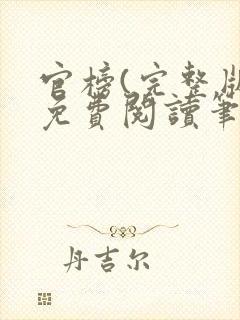 官榜(完整版
免費閱讀筆
丹吉尔